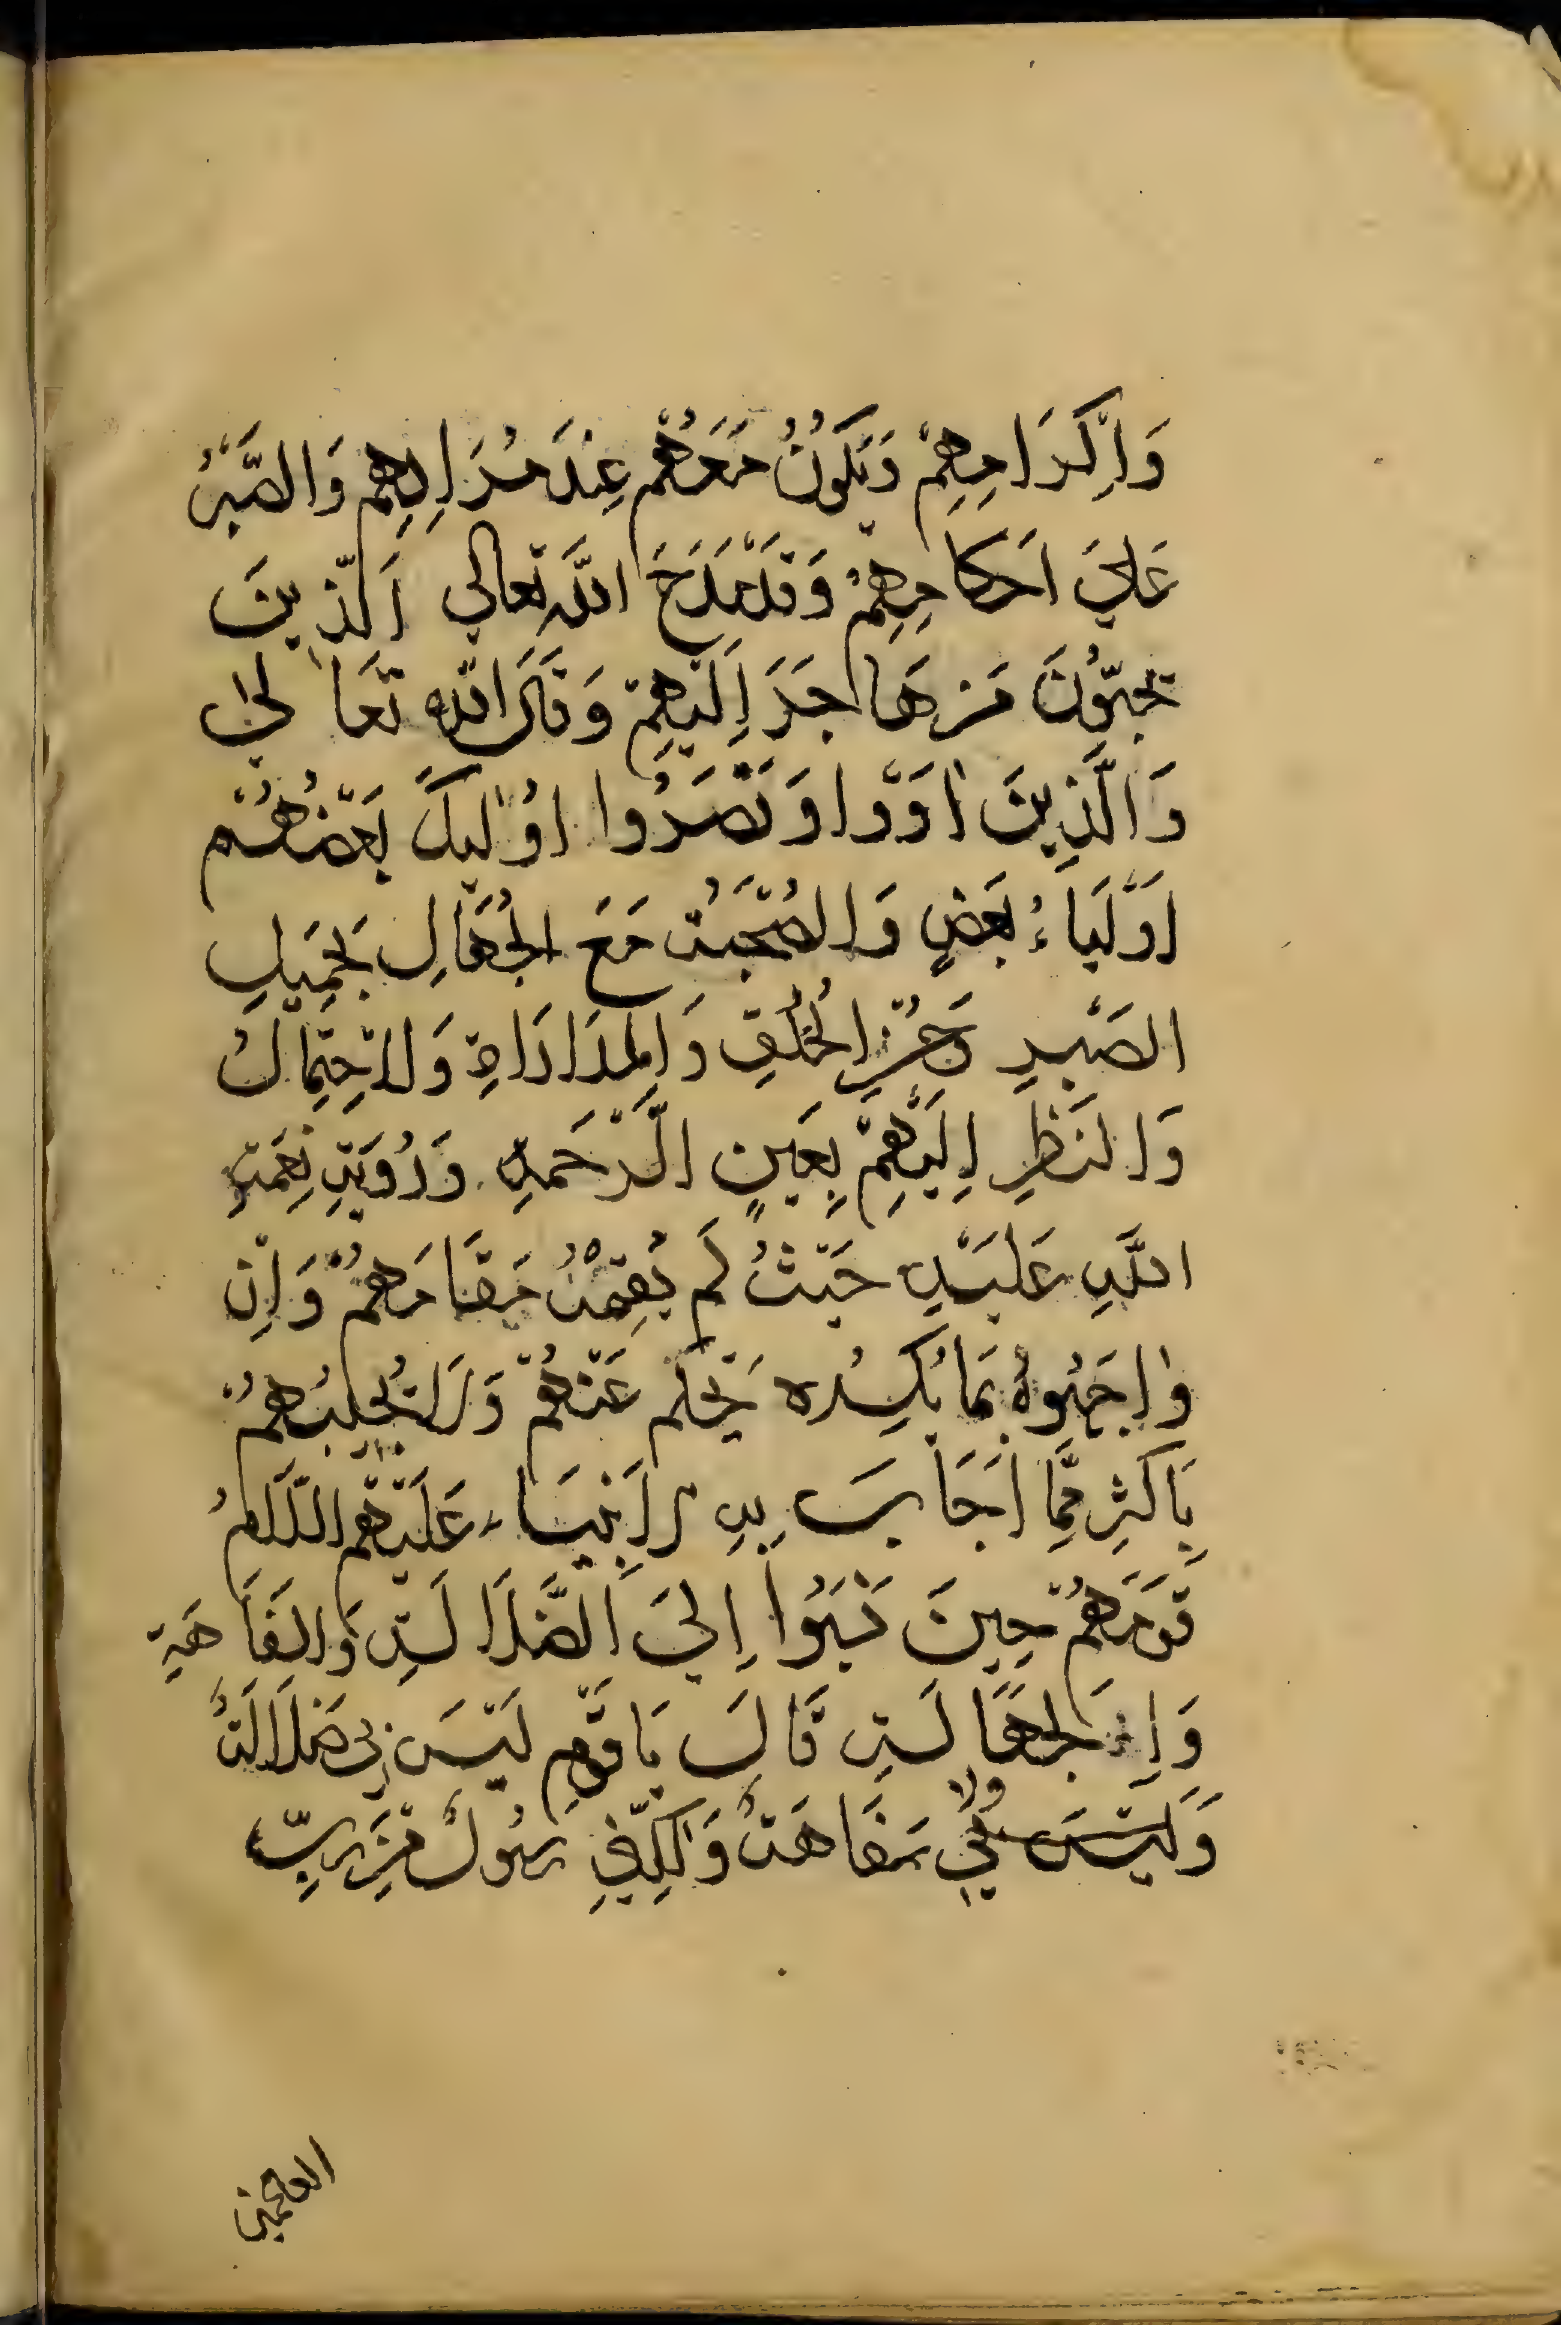 وَاِكْرَامِهِمْ وَيَكُونُ مَعَهُمْ عِنْدَ مُرَادِهِم وَالصَّبْرُ
عَلَيَ اَحكَامِهِمْ وَقَدْ مَدَحَ اللَّه تَعالي اَلَّذِينَ
يحِبّوُنَ مَن هَاجَرَ اِلَيْهِمْ وَقَالَ اللّه تَعَالى
وَالَّذِينَ اوَوْا وَنَصَرُوا اوُليكَ بَعْضُهُمْ
اَوْلَيَاءُ بَعَضٍ وَالصُحْبَتُ مَعَ الجُهَّالِ بجَمِيَلِ
الصَبْرِ وَحُسْنِ الْخُلُقِ وَالمدَارَاةِ وَلاحِتِمَالُ
وَالنَظَرِ اِلَيْهِمْ بِعَينٍ الَّرْحَمةِ وَرُويَتِ نِعَمَتِ
اللَّهِ عَلَيْهِ حَيْثُ لَم يُقِمْهُ مَقَامَهُمْ وَاِنْ
وَاجَهُوهُ بمَا يُكرِهُ يَحْلُم عَنْهُمْ وَلَا يُجيبُهُمْ
بِاَكثَرِ مِمَّا اَجَابَ بِهِ الاَنبِيَاء عَلَيْهِم السَّلَامُ
قَومَهُمْ حِينَ نسَبَوُا اِليَ الضَّلَالَتِ وَالسَفَاهَةِ
وَاِلى الجهَالَتِ قَالَ يَا قَوْمِ لَيْسَ بِى ضَلَالَتٌ
وَلَيْسَ ولا بيِ سَفَاهَتٌ وَلكِنّيِ رَسُولٌ مِنْ رَبِّ
العلمين